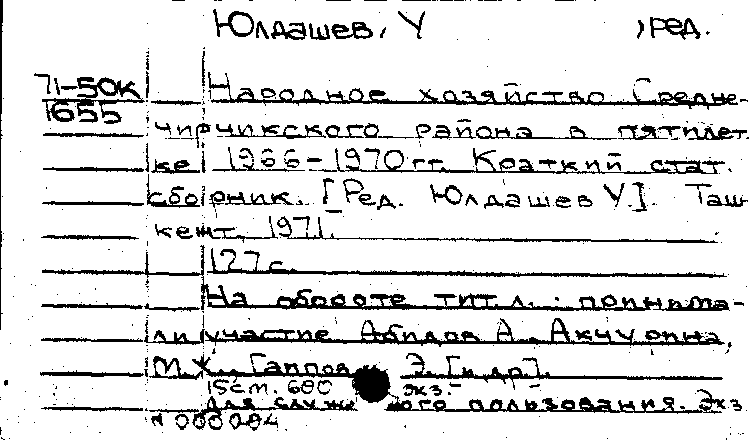 Юлдашев, У )ред.
71-50к
1655
Народное хозяйство Средне-
чирчикского района в пятилет-
ке 1966-1970 гг. Краткий стат.
сборник. [Ред. Юлдашев У]. Таш-
кент, 1971.
127 с.
На обороте тит. л.: принима-
ли участие Абидов А., Акчурина,
М.Х., Гаппов Э. [и др].
15см. 600 экз.
Для служебного пользования. Экз
N 000084.